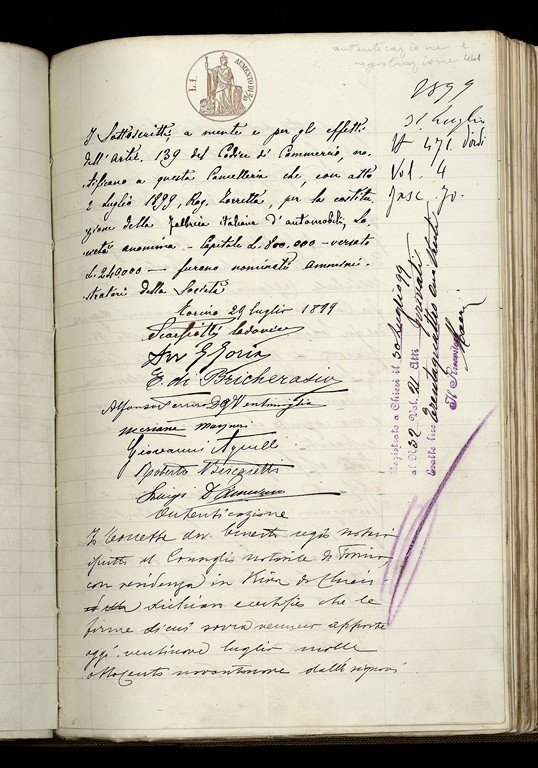 autenticazione e
registrazione 441
L.I.
AUMENTO DI 2/10
1899
31 Luglio
N 471 d'ord
Vol. 4
Fasc. 70.
I Sottoscritti, a mente e per gli effetti
dell'Artic. 139 del Codice di Commercio, no-
tificano a questa Cancelleria che, con atto
2 Luglio 1899, Rog. Torretta, per la costitu-
zione della Fabbrica italiana d'automobili, So-
cietà anonima - Capitale L. 800.000 - versato
L. 240000 - furono nominati amminis-
tratori della Società
Torino 29 luglio 1899
Scarfiotti Lodovico
E. di Bricherasio
Alfonso Ferrero di Ventimiglia
Giovanni Agnelli
Roberto Biscaretti
Luigi Damevino
Autenticazione
Io Torretta dor. regio notaio
al Consiglio notarile di Torino,
con residenza in Riva di Chieri
dichiaro e certifico che le
firme di cui sovra vennero apposte
oggi ventinove luglio mille
ottocento novantanove dalli signori
Registrato a Chieri il 30 Luglio 99
al N. 32 Vol. 21 Atti Privati
Esatte lire
Il Ricevitore